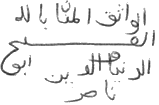 الواثق المنا بالله
الفتح
الدنيا والدين ابو
ناصر